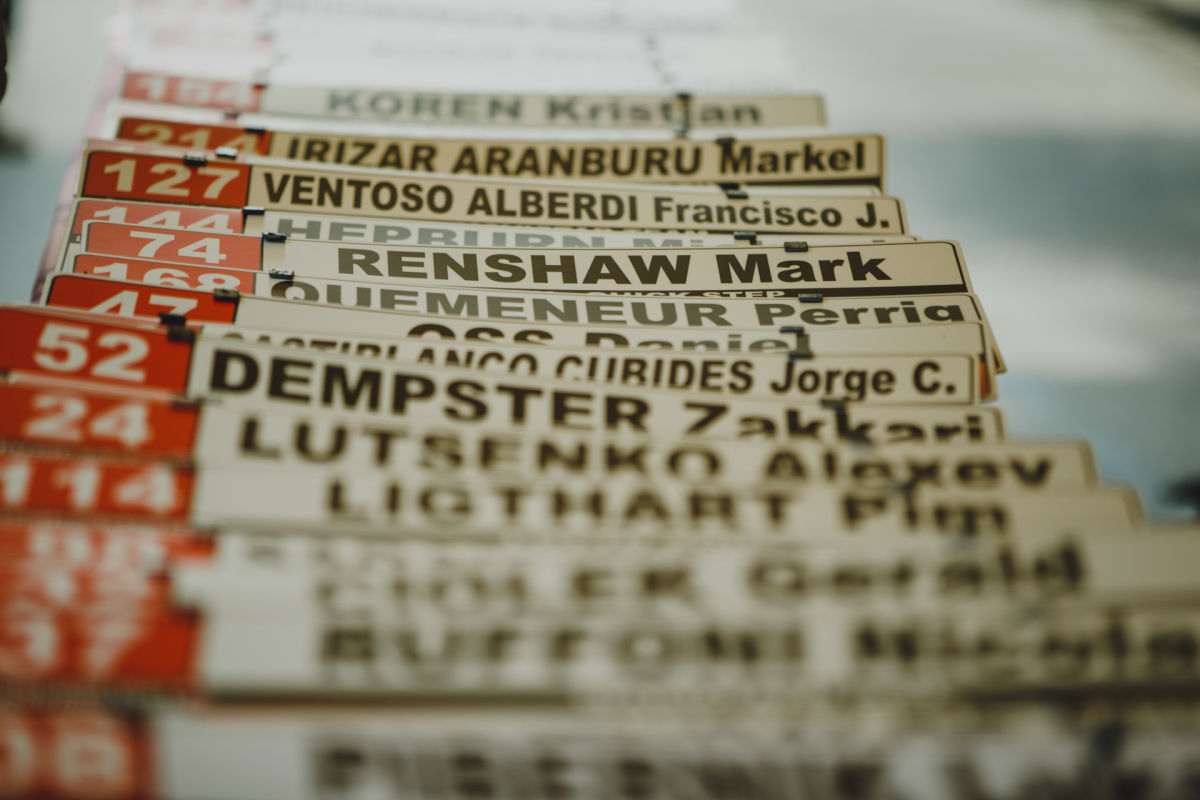 164 KOREN Kristjan
214 IRIZAR ARANBURU Markel
127 VENTOSO ALBERDI Francisco J.
144 HEPBURN
74 RENSHAW Mark
QUICK STEP
168 QUEMENEUR Perrig
47 OSS Daniel
CASTIBLANCO CUBIDES Jorge C.
52 DEMPSTER Zakkari
24 LUTSENKO Alexey
114 LIGTHART Pim
CIOLEK Gerald
37 BUFFONI